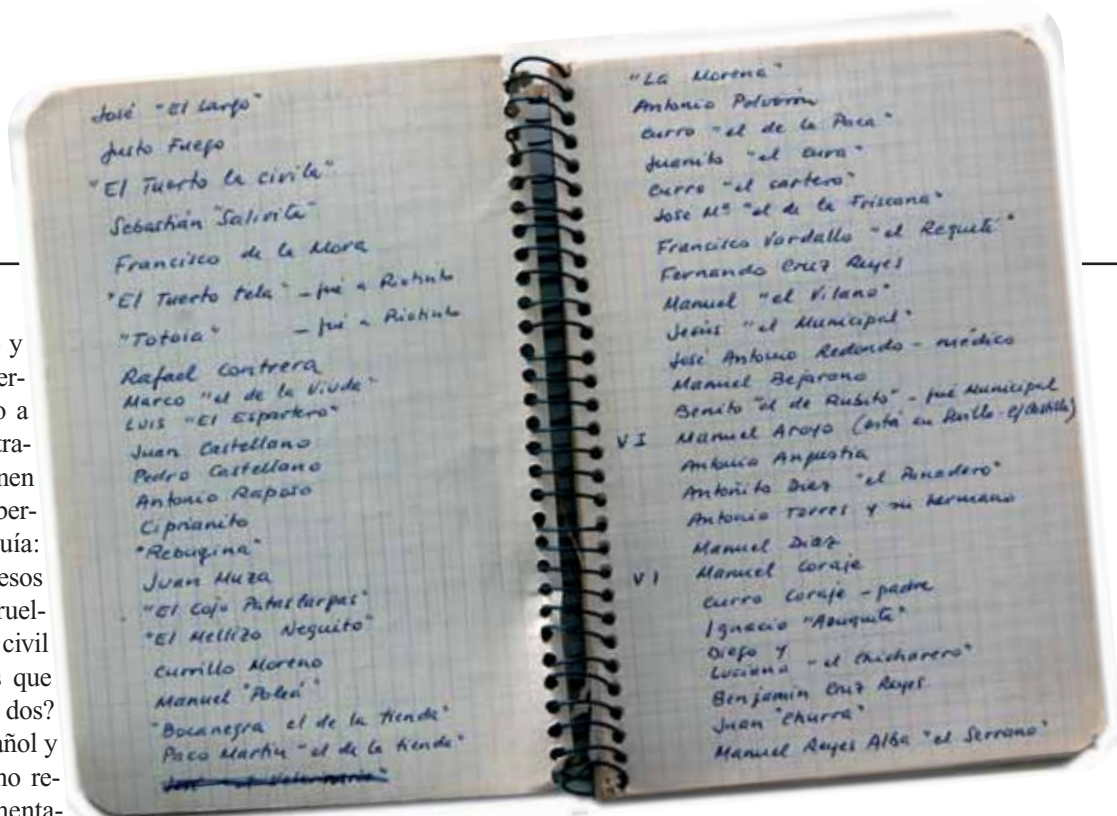 José "El Largo"
Justo Fuego
"El Tuerto la civila"
Sebastián "Salivita"
Francisco de la Mora
"El Tuerto tela" - fué a Riotinto
"Totoia" - fué a Riotinto
Rafael Contrera
Marco "el de la Viuda"
Luis "El Espartero"
Juan Castellano
Pedro Castellano
Antonio Raposo
Ciprianito
"Rebugina"
Juan Muza
"El Cojo Pataslargas"
"El Mellizo Neguito"
Currillo Moreno
Manuel "Poleá"
"Bocanegra el de la tienda"
Paco Martín "el de la tienda"
José "el Veterinario"
"La Morena"
Antonio Polvorón
Curro "el de la Paca"
Juanito "el cura"
Curro "el cartero"
José Mª "el de la Friscana"
Francisco Vardallo "el Requeté"
Fernando Cruz Reyes
Manuel "el Vilano"
Jesús "el Municipal"
José Antonio Redondo - médico
Manuel Bejarano
Benito "el de Rubito" - fué Municipal
VI Manuel Aroyo (está en Sevilla - c/ Castilla)
Antonio Angustia
Antoñito Diez "el Panadero"
Antonio Torres y su hermano
Manuel Diaz
VI Manuel Coraje
Curro Coraje - padre
Ignacio "Azuquita"
Diego y
Luciano - "el Chicharero"
Benjamín Cruz Reyes
Juan "Churra"
Manuel Reyes Alba "el Serrano"
y
er-
o a
tra-
nen
ber-
uía:
esos
ruel-
civil
s que
dos?
añol y
no re-
menta-